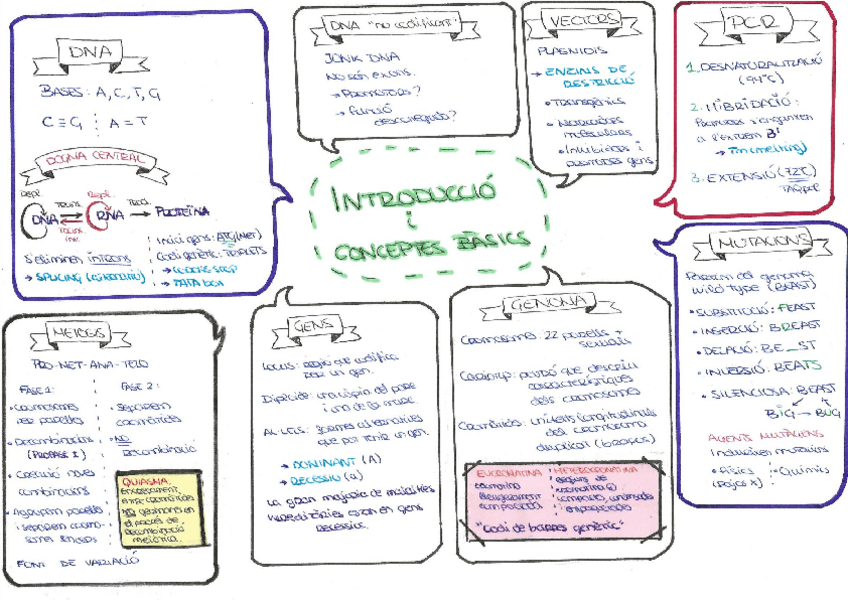 DNA
BASES: A, C, T, G
C≡G A=T
DOGMA CENTRAL
Repl. Repl.
DNA RNA → PROTEÏNA
Inici gens: ATG (Met)
Codi genètic: TRIPLETS
→ CODONS STOP
→ TATA box
S'eliminen introns
→ SPLICING
DNA "no codificant"
JUNK DNA
No són exons.
→ Promotors?
→ Funció
desconeguda?
VECTORS
PLASMIDIS
→ ENZIMS DE
RESTRICCIÓ
• Transgènics
• Marcadores
moleculars
• Inhibidors i
gens
PCR
1. DESNATURALITZACIÓ
(94ºC)
2. HIBRIDACIÓ:
a l'extrem 3'
→ Tm (melting)
3. EXTENSIÓ (72ºC)
Taq pol
INTRODUCCIÓ
i
CONCEPTES BÀSICS
MUTACIONS
Patró del genoma
wild type (BEAST)
• SUBSTITUCIÓ: FEAST
• INSERCIÓ: BREAST
• DELACIÓ: BE_ST
• INVERSIÓ: BEATS
• SILENCIOSA: BEAST
BIG → BUG
AGENTS MUTÀGENS
Indueixen mutacions
• Físics • Químics
(Rajos X)
MEIOSIS
PRO-MET-ANA-TELO
FASE 1: FASE 2:
• Cromosomes
per parelles
• Recombinació
(PROFASE I)
• Creació noves
combinacions
• Agrupem parelles
i separem cromo-
somes
• Separem
cromàtides
• NO
Recombinació
QUIASMA:
Entrecreuament
entre cromàtides
NO germanes en
el procés de
recombinació
meiòtica.
FONT DE VARIACIÓ
GENS
Locus: regió que codifica
per un gen.
Diploide: una còpia del pare
i una de la mare
AL·LELS: formes alternatives
que pot tenir un gen.
→ DOMINANT (A)
→ RECESSIU (a)
La gran majoria de malalties
hereditàries estan en gens
recessius.
GENOMA
Cromosomes: 22 parelles +
sexuals
Cariotip: patró que descriu
característiques
dels cromosomes
Cromàtides: unitats longitudinals
del cromosoma
duplicat (braços)
EUCROMATINA
cromatina
lleugerament
compactada
HETEROCROMATINA
regions de
cromatina
"Codi de barres genètic"